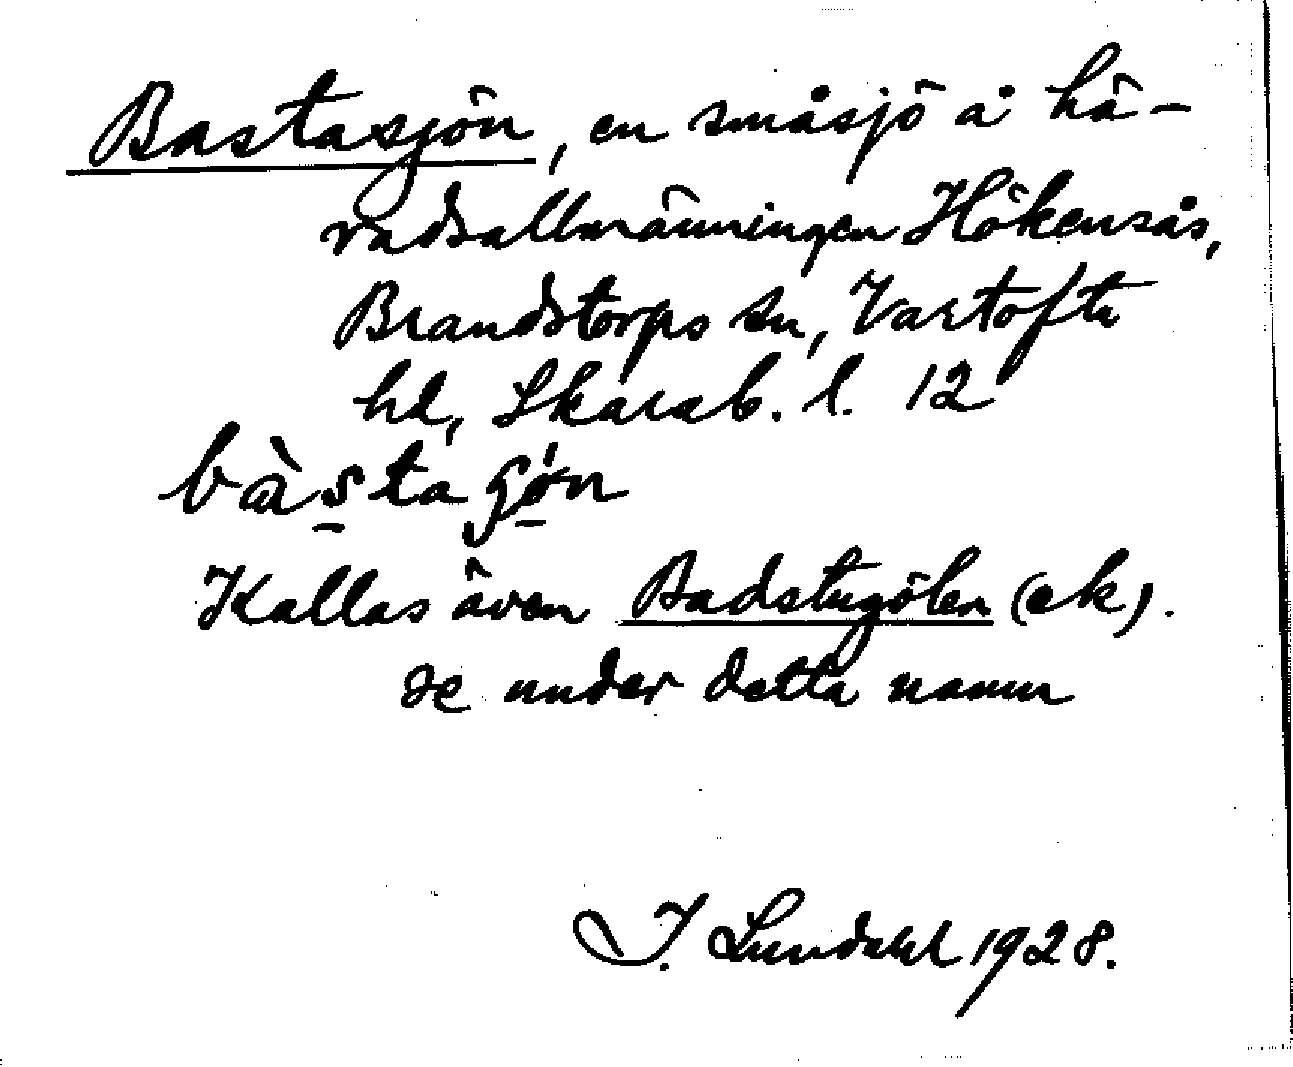 Bastasjön, en småsjö å hä-
radsallmänningen Hökensås,
Brandstorps sn, Vartofta
hd, Skarab. l. 12
bàsta
Kallas även Badstugölen (ek).
se under detta namn
I. Lundahl 1928.